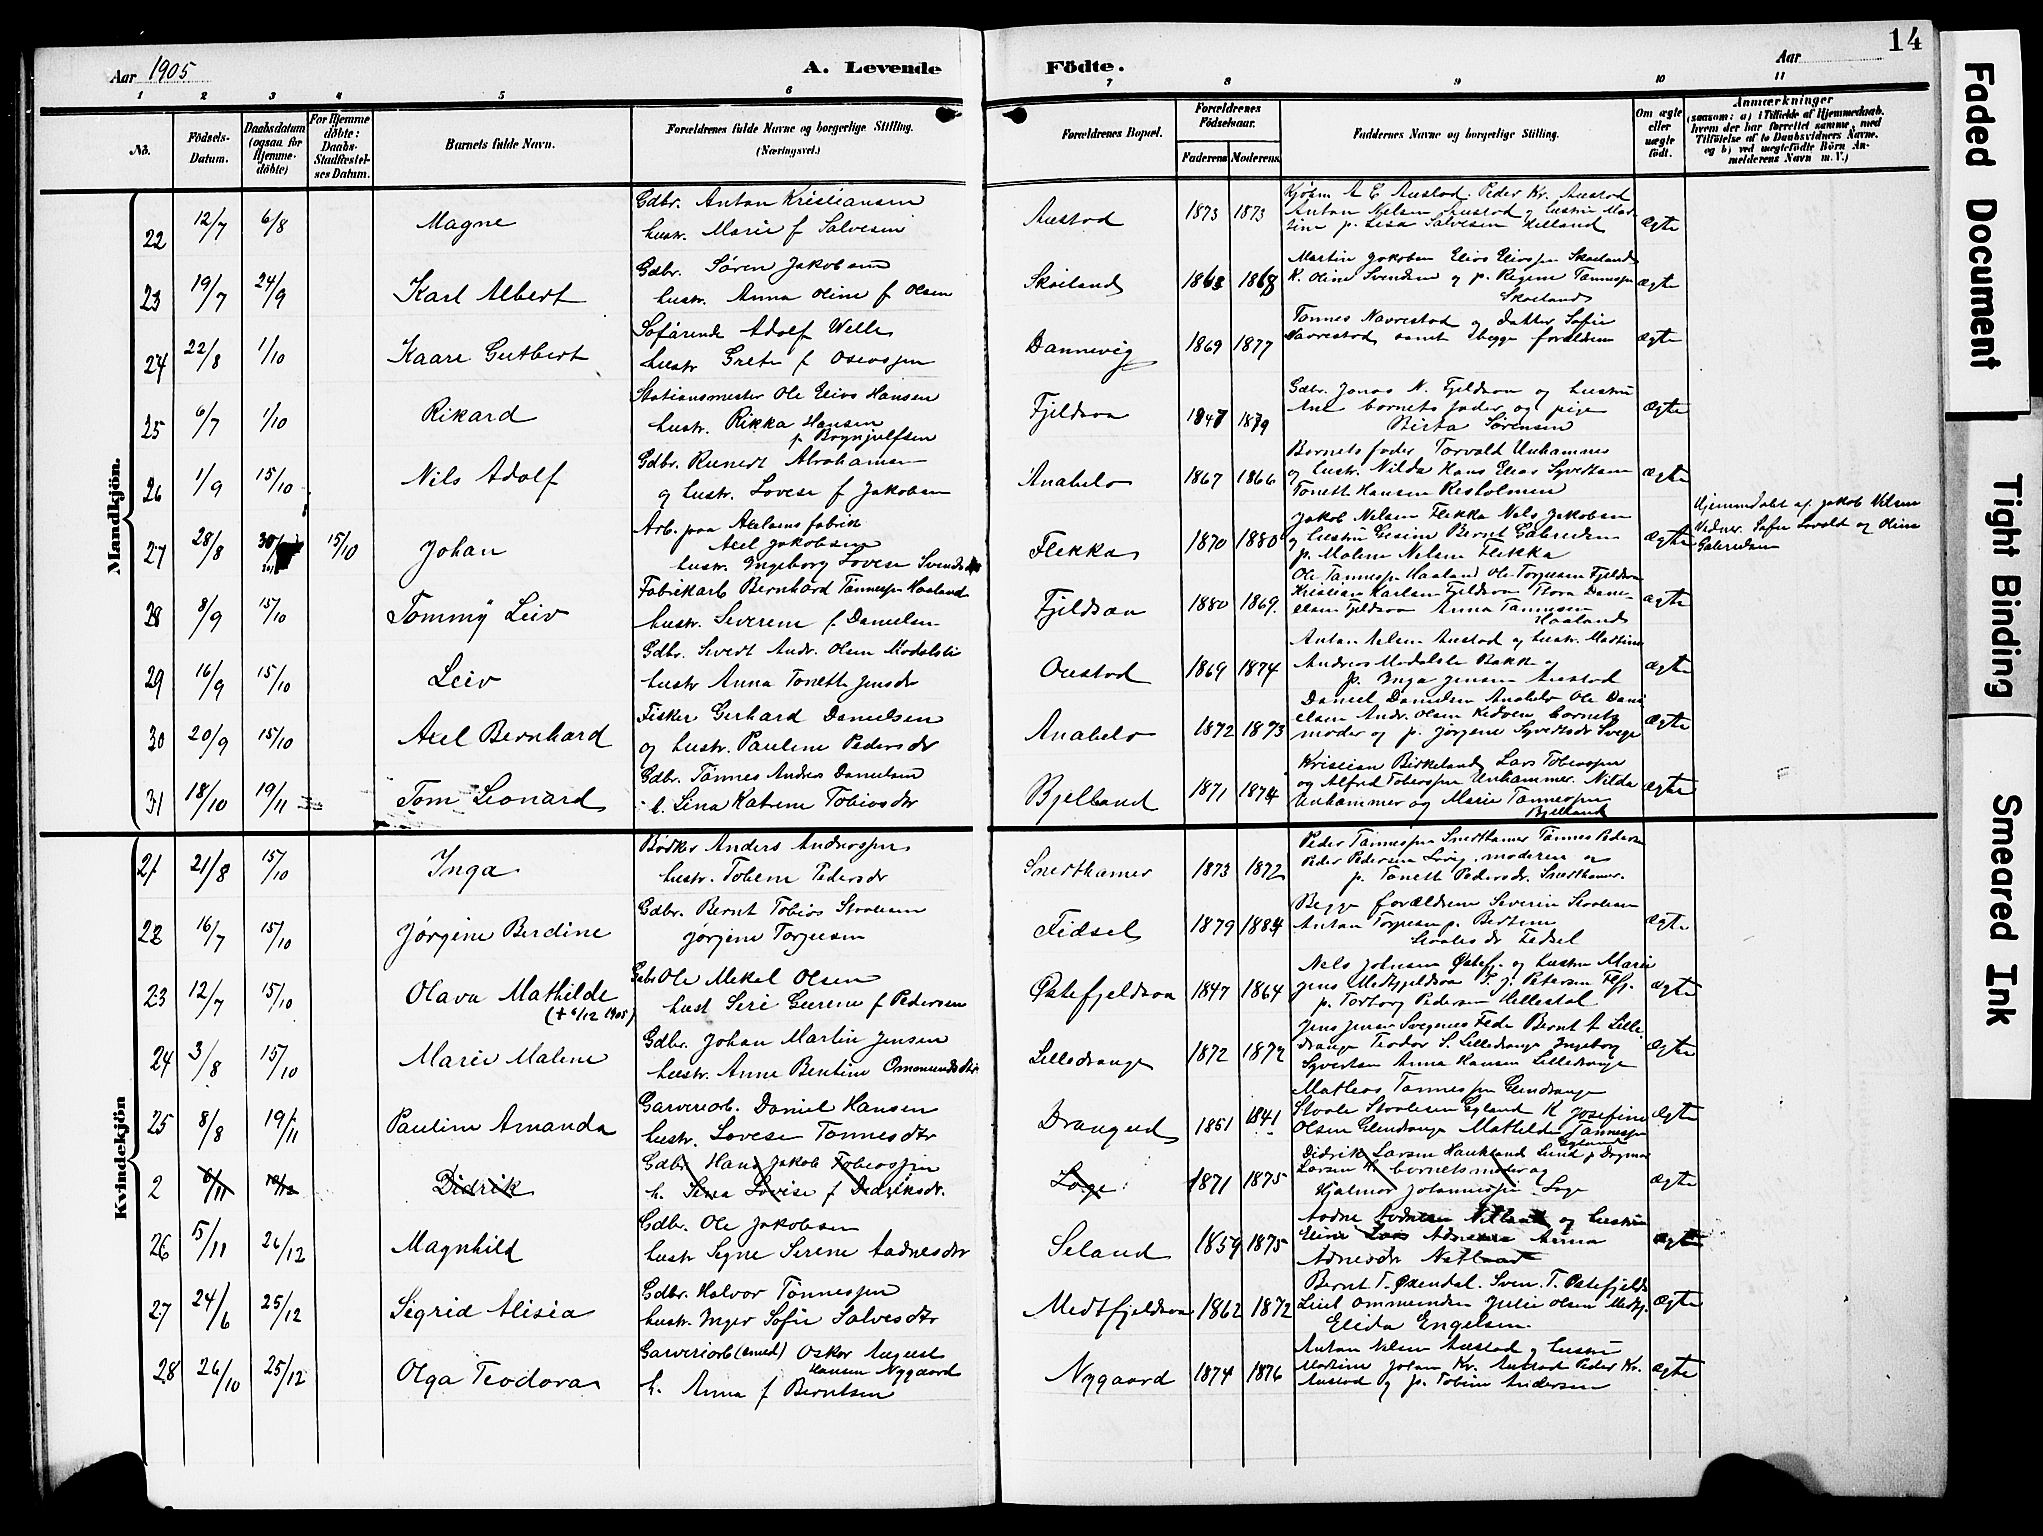 14
Aar 1905
A. Levende
Födte.
Aar
1 2 3 4 5 6 7 8 9 10 11
No.
Födsels-Datum.
Daabsdatum (ogsaa for Hjemme-döbte)
For Hjemme döbte: Daabs-Stadfestelses Datum.
Barnets fulde Navn.
Forældrenes fulde Navne og borgerlige Stilling.
(Næringsvei.)
Forældrenes Bopæl.
Forældrenes Födselsaar.
Faderens Moderens
Faddernes Navne og borgerlige Stilling.
Om ægte eller uægte födt.
Anmærkninger
(saasom: a) i Tilfælde af Hjemmedaab, hvem der har forrettet samme, med Tilföielse af to Daabsvidners Navne. og b) ved uægtefödte Börn Anmelderens Navn m. V.)
Mandkjön.
22 12/7 6/8 Magne
Gdbr. Anton Kristiansen
hustr. Marie f Salvesen
Austad 1873 1873
Anton Nelsen Austad og hustru
ægte
23 19/7 24/9 Karl Albert
Gdbr. Søren Jakobsen
hustr. Anna Oline f Olsen
Skoiland 1863 1868
K. Oline Svendsen og p. Regine Tønnespn
Skoiland
ægte
24 22/8 1/10 Kaare Gutbert
Sofarende Adolf Welle
hustr Grete f Oseospn
Dannevig 1869 1877
Tonnes Navrestad og datter Sofie
Navrestad samt begge forældrene
ægte
25 6/7 1/10 Rikard
Stationsmester Ole Elios Hansen
hustr. Rikka Hansen
f Brynjulfsen
Fjeldsaa 1847 1879
Gdbr. Jonas N. Fjeldsaa og hustru
Ane barnets fader og pige
Berta Sørensen
ægte
26 1/9 15/10 Nils Adolf
Gdbr. Reinert Abrahamsen
og hustr. Lovise f Jakobsen
Anabelø 1867 1866
Barnets fader Torvald Unhammer
Tonette Hansen Resholmen
ægte
27 28/8 15/10 Johan
Arb. paa Axelsens fabrik
Axel Jakobsen
hustr. Ingeborg Lovise Svendsdtr
Flekka 1870 1880
Jakob Nelsen Flekka Nels Jakobsen
p. Malene Nelsen Flekka
ægte
Hjemmedøbt af Jakob Nelsen
28 8/9 15/10 Tommy Leiv
Fabrikarb Bernhard Tønnespn Haaland
hustr. Severine f Danielsen
Fjeldsaa 1880 1869
Ole Tønnespn Haaland Ole Torjusen Fjeldsaa
Kristian Karlsen Fjeldsaa Thora Dani-
elsen Fjeldsaa Anna Tønnesen
Haaland
ægte
29 16/9 15/10 Leiv
Gdbr. Sivert Andr. Olsen Modalsli
hustr Anna Tonette Jensdtr
Oustad 1869 1874
Anton Nelsen Austad og hustr. Martine
p. Inga Jensen Austad
ægte
30 20/9 15/10 Axel Bernhard
Fisker Gerhard Danielsen
og hustr. Pauline Pedersdr
Anabelø 1872 1873
Daniel Danielsen Anabelø Ole Dani
elsen Andr. Olsen Kedven barnets
moder og p. Jørgine Syvertsdr Svege
ægte
31 18/10 19/11 Tom Leonard
Gdbr. Tønnes Andreas Danielsen
h. Lina Katrine Tobiasdtr
Bjelland 1871 1874
Kristian Birkeland Lars Tobiaspn
og Alfred Tobiaspn Unhammer. Nilda
Unhammer og Marie Tønnespn
Bjelland
ægte
Kvindekjön
21 21/8 15/10 Inga
Bødker Anders Andrespn
hustr. Tobine Pedersdr
Snerthamer 1873 1872
Peder Tønnespn Snerthamer Tønnes Pedersen
Peder Pedersen Løvig. moderen og
p. Tonette Pedersdr. Snerthamer.
22 16/7 15/10 Jørgine Berdine
Gdbr. Bernt Tobias Staalesen
Jørgine Torjusen
Fidsel 1879 1884
Begge forældrene Severin Staalesen
Anton Torjusen p. Bertine
Staalesdr Fedsel
ægte
23 12/7 15/10 Olava Mathilde
(+ 6/12 1905)
Gdbr Ole Mekal Olsen
hust Siri Gurine f Pedersen
Østefjeldsaa 1847 1864
p. Torborg Pedersen Hellestøl
ægte
24 3/8 15/10 Marie Malene
Gdbr. Johan Martin Jensen
hustr. Anne Bentine Ommundsdtr
Lilledrange 1872 1872
Jens Jensen Svegenes Feda Bernt A Lille
drange Teodor S. Lilledrange Ingeborg
Syvertsen Anna Hansen Lilledrange
ægte
25 8/8 19/11 Pauline Amanda
Garveriarb. Daniel Hansen
hustr. Lovise Tønnesdtr
Drangeid 1851 1841
Mathias Tønnespn Glendrange
Staale Staalesen Egeland K Josefine
Olsen Glendrange Mathilde Tønnespn
Egeland
ægte
2 6/11 10/12 Didrik
Gdbr Hans Jakob Tobiaspn
h. Sina Lovise f Didriksdr.
Løge 1871 1875
Didrik Larsen Haukland Lund p Dagmar
Larsen H. barnets moder og
Hjalmar Johannespn Løge
ægte
26 5/11 26/12 Magnhild
Gdbr. Ole Jakobsen
hustr Signe Serine Aadnesdtr
Seland 1859 1875
Adnesdr Netland
ægte
27 24/6 25/12 Sigrid Alisia
Gdbr. Halvor Tønnespn
hustr. Inger Sofie Salvesdtr
Medtfjeldsaa 1862 1872
Bernt T. Ødendal. Sven. T. Østefjelds
Emil Ommundsen Julie Olsen Medfj.
Elida Engelsen.
ægte
28 26/10 25/12 Olga Teodora
Garveriarb (smed) Oskar August
Hansen Nygaard
h. Anna f Berntsen
Nygaard 1874 1876
Anton Nelsen Austad og hustru
Martine Johan Kr. Austad Peder Kr.
Austad og p. Tobine Andersen
ægte
Faded Document
Tight Binding
Smeared Ink